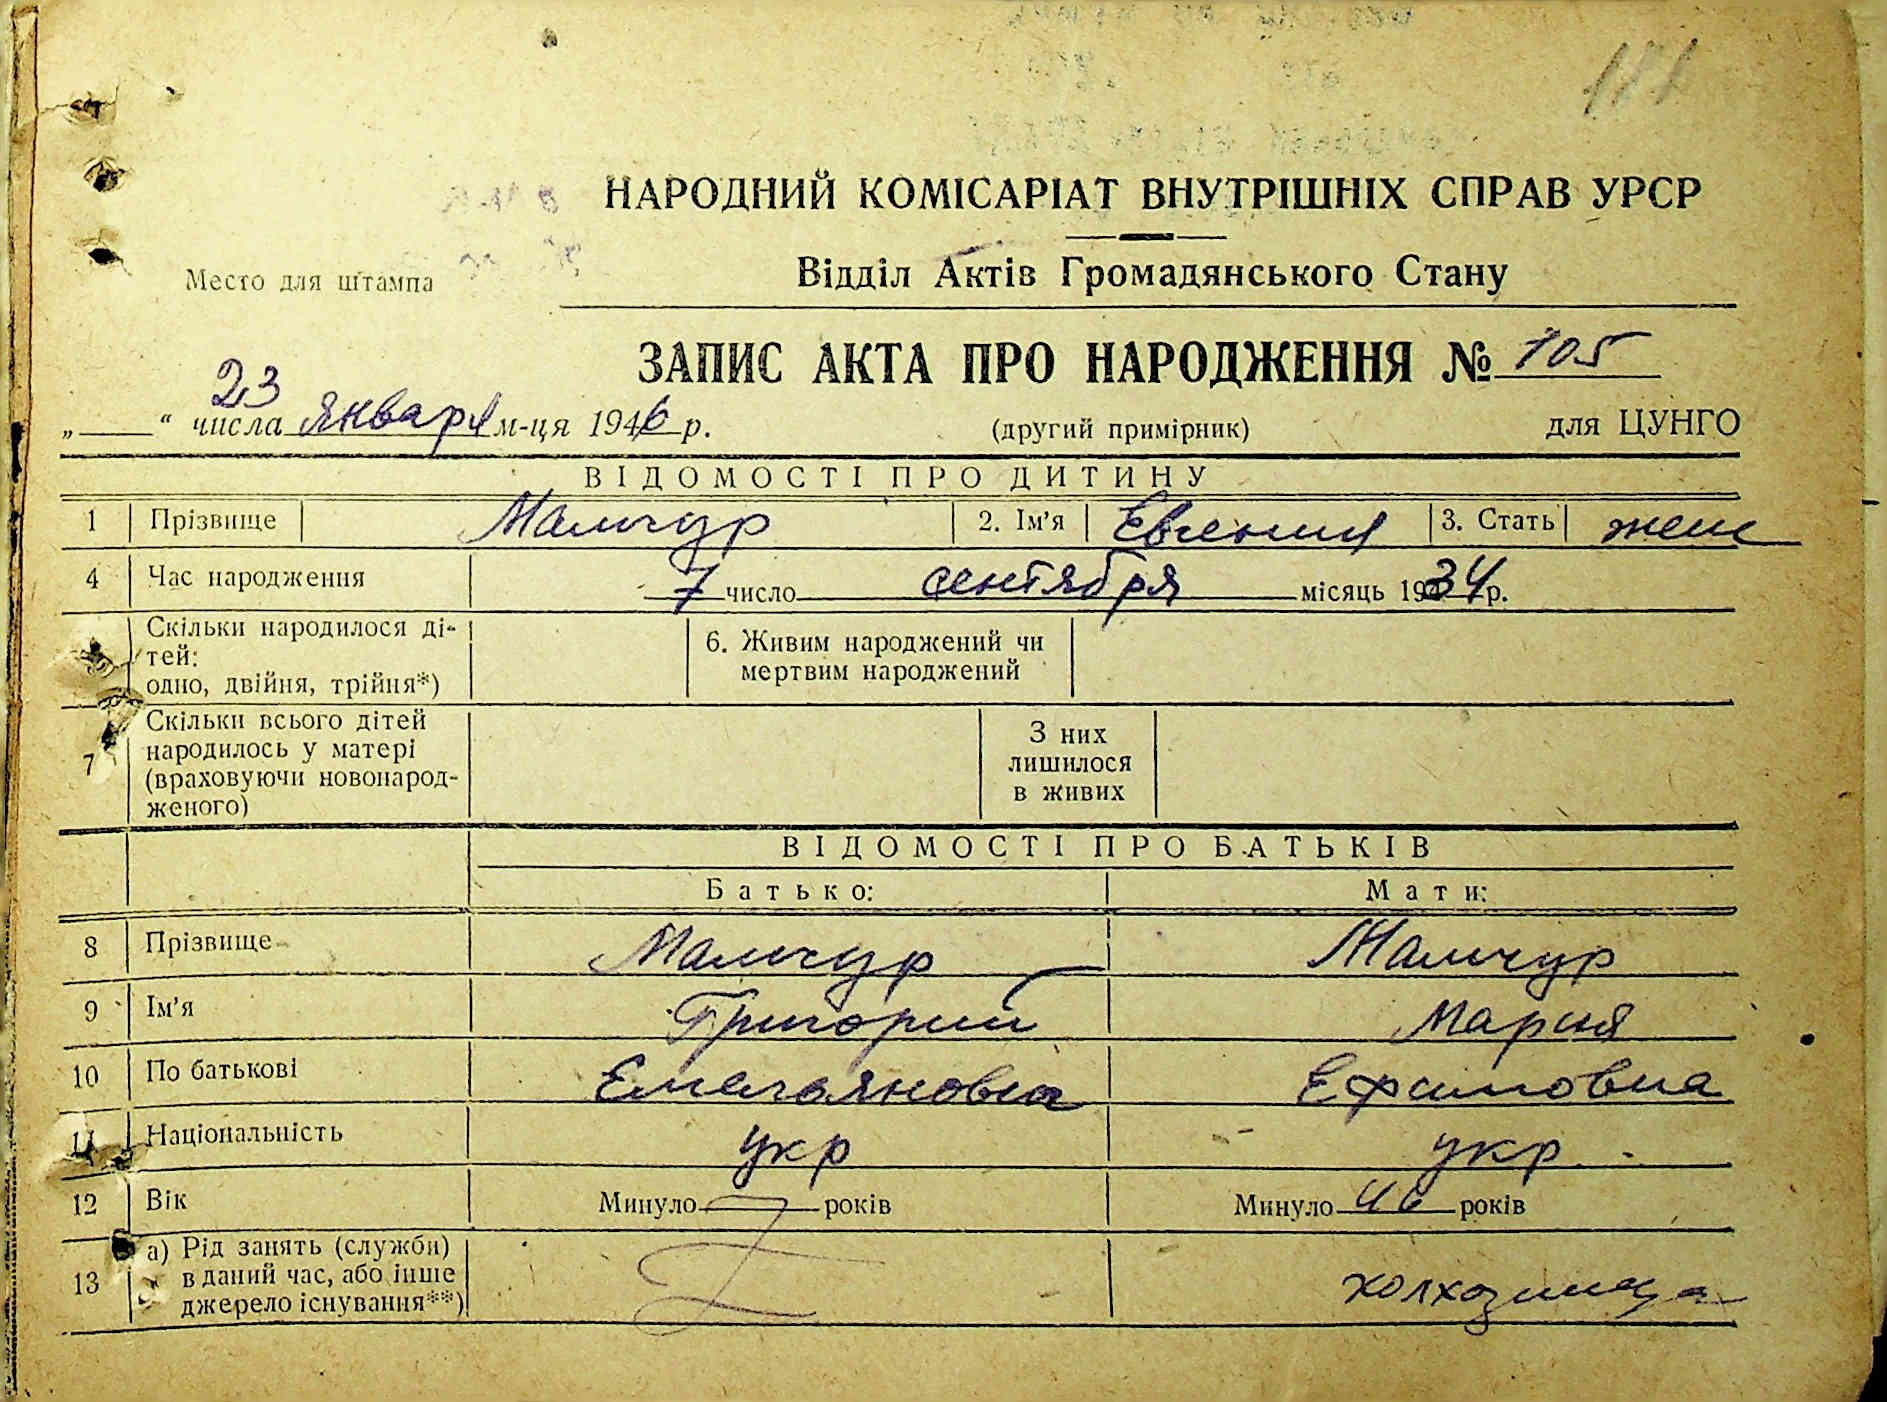 НАРОДНИЙ КОМІСАРІАТ ВНУТРІШНІХ СПРАВ УРСР
Место для штампа
Відділ Актів Громадянського Стану
ЗАПИС АКТА ПРО НАРОДЖЕННЯ № 105
„ “ 23 числа января м-ця 1946 р.
(другий примірник)
для ЦУНГО
ВІДОМОСТІ ПРО ДИТИНУ
1 Прізвище Мамчур 2. Ім'я Евгения 3. Стать жен
4 Час народження 7 число сентября місяць 1934 р.
Скільки народилося ді-
тей:
одно, двійня, трійня*)
6. Живим народжений чи
мертвим народжений
7 Скільки всього дітей
народилось у матері
(враховуючи новонарод-
женого)
З них
лишилося
в живих
ВІДОМОСТІ ПРО БАТЬКІВ
Батько: Мати:
8 Прізвище Мамчур Мамчур
9 Ім'я Григорий Мария
10 По батькові Емельяновна Ефимовна
11 Національність укр укр
12 Вік Минуло років Минуло 46 років
13 а) Рід занять (служби)
в даний час, або інше
джерело існування**)
колхозница